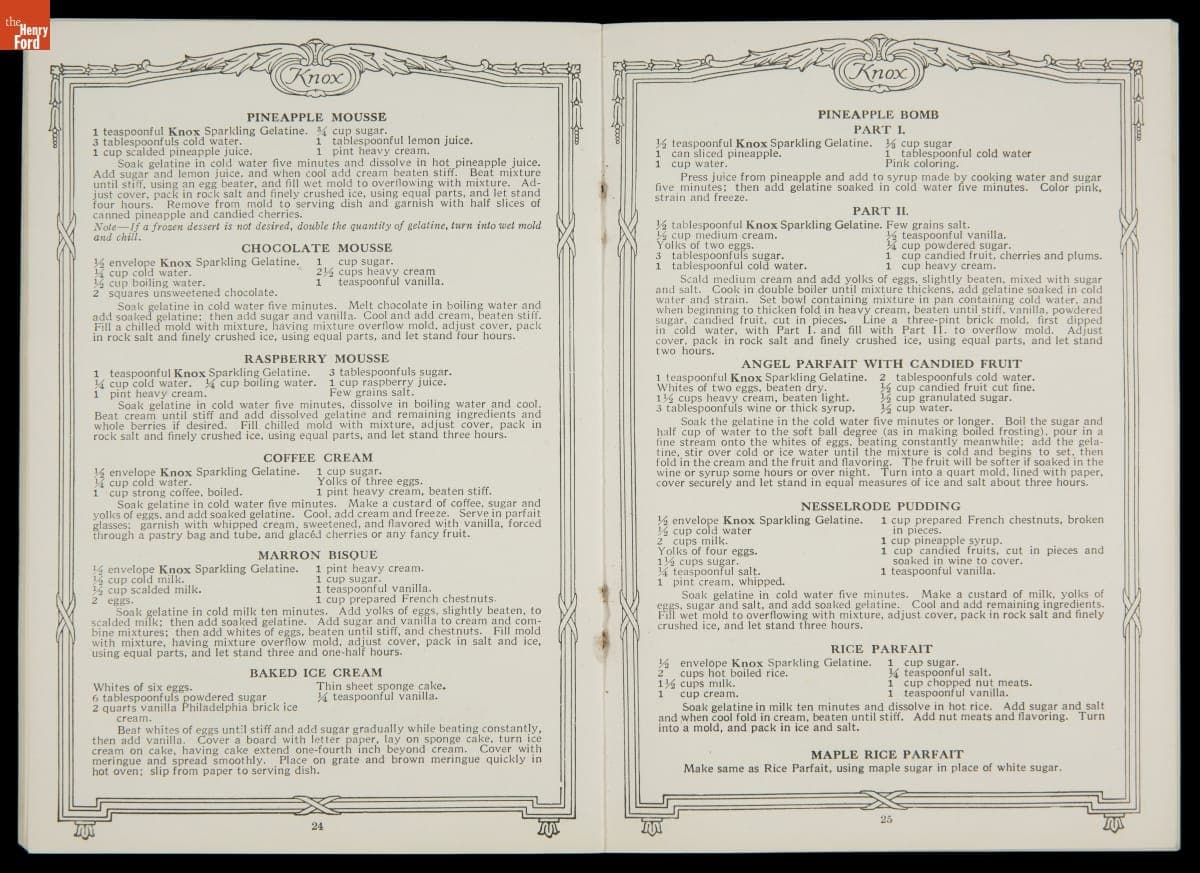 the
Henry
Ford
Knox
PINEAPPLE MOUSSE
1 teaspoonful Knox Sparkling Gelatine. ¾ cup sugar.
3 tablespoonfuls cold water. 1 tablespoonful lemon juice.
1 cup scalded pineapple juice. 1 pint heavy cream.
Soak gelatine in cold water five minutes and dissolve in hot pineapple juice.
Add sugar and lemon juice, and when cool add cream beaten stiff. Beat mixture
until stiff, using an egg beater, and fill wet mold to overflowing with mixture. Ad-
just cover, pack in rock salt and finely crushed ice, using equal parts, and let stand
four hours. Remove from mold to serving dish and garnish with half slices of
canned pineapple and candied cherries.
Note—If a frozen dessert is not desired, double the quantity of gelatine, turn into wet mold
and chill.
CHOCOLATE MOUSSE
½ envelope Knox Sparkling Gelatine. 1 cup sugar.
¼ cup cold water. 2½ cups heavy cream
½ cup boiling water. 1 teaspoonful vanilla.
2 squares unsweetened chocolate.
Soak gelatine in cold water five minutes. Melt chocolate in boiling water and
add soaked gelatine; then add sugar and vanilla. Cool and add cream, beaten stiff.
Fill a chilled mold with mixture, having mixture overflow mold, adjust cover, pack
in rock salt and finely crushed ice, using equal parts, and let stand four hours.
RASPBERRY MOUSSE
1 teaspoonful Knox Sparkling Gelatine. 3 tablespoonfuls sugar.
¼ cup cold water. ¼ cup boiling water. 1 cup raspberry juice.
1 pint heavy cream. Few grains salt.
Soak gelatine in cold water five minutes, dissolve in boiling water and cool.
Beat cream until stiff and add dissolved gelatine and remaining ingredients and
whole berries if desired. Fill chilled mold with mixture, adjust cover, pack in
rock salt and finely crushed ice, using equal parts, and let stand three hours.
COFFEE CREAM
½ envelope Knox Sparkling Gelatine. 1 cup sugar.
¼ cup cold water. Yolks of three eggs.
1 cup strong coffee, boiled. 1 pint heavy cream, beaten stiff.
Soak gelatine in cold water five minutes. Make a custard of coffee, sugar and
yolks of eggs, and add soaked gelatine. Cool, add cream and freeze. Serve in parfait
glasses; garnish with whipped cream, sweetened, and flavored with vanilla, forced
through a pastry bag and tube, and glacéd cherries or any fancy fruit.
MARRON BISQUE
½ envelope Knox Sparkling Gelatine. 1 pint heavy cream.
½ cup cold milk. 1 cup sugar.
½ cup scalded milk. 1 teaspoonful vanilla.
2 eggs. 1 cup prepared French chestnuts.
Soak gelatine in cold milk ten minutes. Add yolks of eggs, slightly beaten, to
scalded milk; then add soaked gelatine. Add sugar and vanilla to cream and com-
bine mixtures; then add whites of eggs, beaten until stiff, and chestnuts. Fill mold
with mixture, having mixture overflow mold, adjust cover, pack in salt and ice,
using equal parts, and let stand three and one-half hours.
BAKED ICE CREAM
Whites of six eggs. Thin sheet sponge cake.
6 tablespoonfuls powdered sugar ¼ teaspoonful vanilla.
2 quarts vanilla Philadelphia brick ice
cream.
Beat whites of eggs until stiff and add sugar gradually while beating constantly,
then add vanilla. Cover a board with letter paper, lay on sponge cake, turn ice
cream on cake, having cake extend one-fourth inch beyond cream. Cover with
meringue and spread smoothly. Place on grate and brown meringue quickly in
hot oven; slip from paper to serving dish.
24
Knox
PINEAPPLE BOMB
PART I.
½ teaspoonful Knox Sparkling Gelatine. ⅓ cup sugar
1 can sliced pineapple. 1 tablespoonful cold water
1 cup water. Pink coloring.
Press juice from pineapple and add to syrup made by cooking water and sugar
five minutes; then add gelatine soaked in cold water five minutes. Color pink,
strain and freeze.
PART II.
½ tablespoonful Knox Sparkling Gelatine. Few grains salt.
½ cup medium cream. ½ teaspoonful vanilla.
Yolks of two eggs. ¼ cup powdered sugar.
3 tablespoonfuls sugar. 1 cup candied fruit, cherries and plums.
1 tablespoonful cold water. 1 cup heavy cream.
Scald medium cream and add yolks of eggs, slightly beaten, mixed with sugar
and salt. Cook in double boiler until mixture thickens, add gelatine soaked in cold
water and strain. Set bowl containing mixture in pan containing cold water, and
when beginning to thicken fold in heavy cream, beaten until stiff, vanilla, powdered
sugar, candied fruit, cut in pieces. Line a three-pint brick mold, first dipped
in cold water, with Part I. and fill with Part II. to overflow mold. Adjust
cover, pack in rock salt and finely crushed ice, using equal parts, and let stand
two hours.
ANGEL PARFAIT WITH CANDIED FRUIT
1 teaspoonful Knox Sparkling Gelatine. 2 tablespoonfuls cold water.
Whites of two eggs, beaten dry. ½ cup candied fruit cut fine.
1½ cups heavy cream, beaten light. ½ cup granulated sugar.
3 tablespoonfuls wine or thick syrup. ½ cup water.
Soak the gelatine in the cold water five minutes or longer. Boil the sugar and
half cup of water to the soft ball degree (as in making boiled frosting), pour in a
fine stream onto the whites of eggs, beating constantly meanwhile; add the gela-
tine, stir over cold or ice water until the mixture is cold and begins to set, then
fold in the cream and the fruit and flavoring. The fruit will be softer if soaked in the
wine or syrup some hours or over night. Turn into a quart mold, lined with paper,
cover securely and let stand in equal measures of ice and salt about three hours.
NESSELRODE PUDDING
½ envelope Knox Sparkling Gelatine. 1 cup prepared French chestnuts, broken
½ cup cold water in pieces.
2 cups milk. 1 cup pineapple syrup.
Yolks of four eggs. 1 cup candied fruits, cut in pieces and
1½ cups sugar. soaked in wine to cover.
¼ teaspoonful salt. 1 teaspoonful vanilla.
1 pint cream, whipped.
Soak gelatine in cold water five minutes. Make a custard of milk, yolks of
eggs, sugar and salt, and add soaked gelatine. Cool and add remaining ingredients.
Fill wet mold to overflowing with mixture, adjust cover, pack in rock salt and finely
crushed ice, and let stand three hours.
RICE PARFAIT
½ envelope Knox Sparkling Gelatine. 1 cup sugar.
2 cups hot boiled rice. ¼ teaspoonful salt.
1½ cups milk. 1 cup chopped nut meats.
1 cup cream. 1 teaspoonful vanilla.
Soak gelatine in milk ten minutes and dissolve in hot rice. Add sugar and salt
and when cool fold in cream, beaten until stiff. Add nut meats and flavoring. Turn
into a mold, and pack in ice and salt.
MAPLE RICE PARFAIT
Make same as Rice Parfait, using maple sugar in place of white sugar.
25